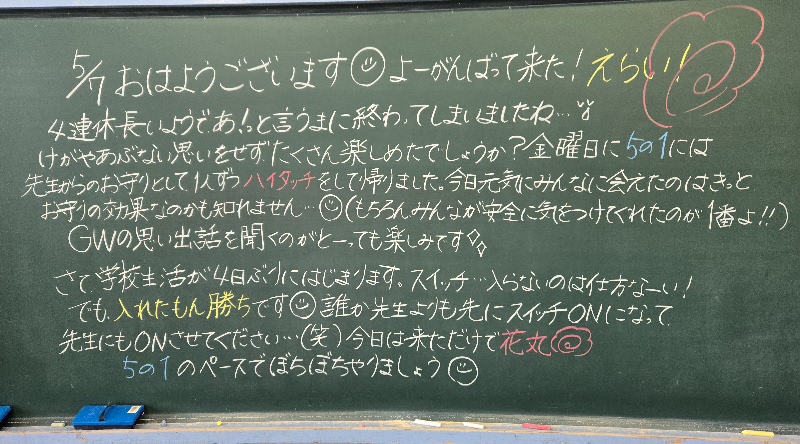 5/7 おはようございます☺よーがんばって来た！えらい！！
4連休長いようであ！っと言うまに終わってしまいましたね…
けがやあぶない思いをせず、たくさん楽しめたでしょうか？金曜日に5の1には
先生からのお守りとして1人ずつハイタッチをして帰りました。今日元気にみんなに会えたのはきっと
お守りの効果なのかも知れません…☺(もちろんみんなが安全に気をつけてくれたのが1番よ!!)
GWの思い出話を聞くのがとーっても楽しみです✧✧
さて学校生活が4日ぶりにはじまります。スイッチ…入らないのは仕方なーい！
でも、入れたもん勝ちです☺誰か先生よりも先にスイッチONになって
先生にもONさせてください…(笑)今日は来ただけで花丸
5の1のペースでぼちぼちやりましょう☺